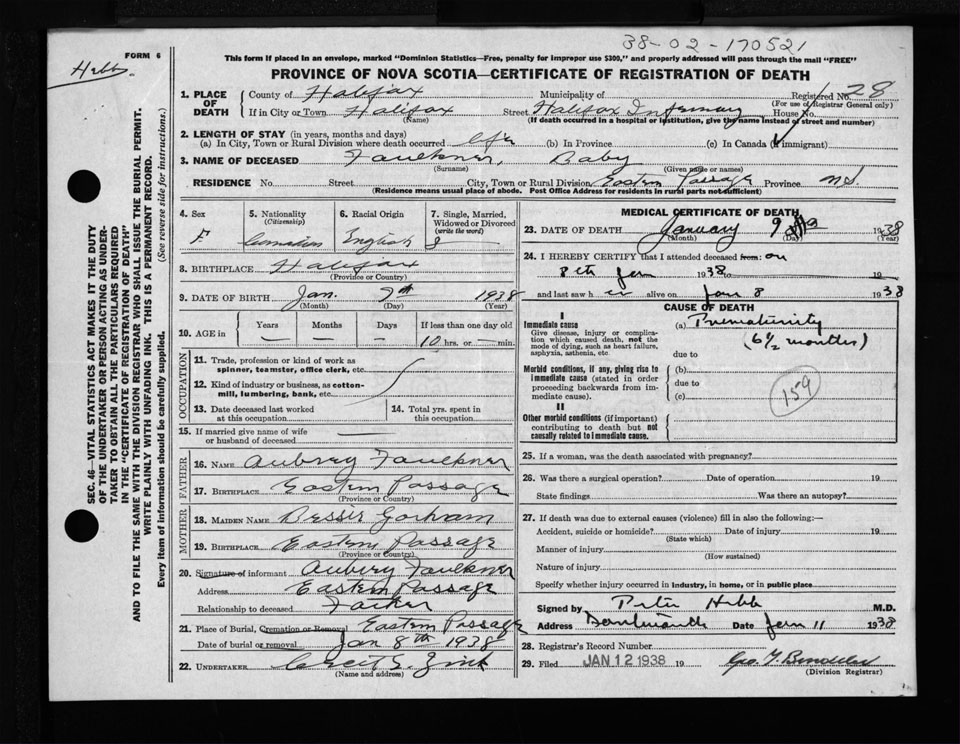 38-02-170521
FORM 6
Hebb
This form if placed in an envelope, marked "Dominion Statistics—Free, penalty for improper use $300," and properly addressed will pass through the mail "FREE"
PROVINCE OF NOVA SCOTIA—CERTIFICATE OF REGISTRATION OF DEATH
1. PLACE OF DEATH
County of Halifax Municipality of Registered No. 28
(For use of Registrar General only)
If in City or Town Halifax Street Halifax Infirmary House No.
(Name) (If death occurred in a hospital or institution, give the name instead of street and number)
2. LENGTH OF STAY (in years, months and days)
(a) In City, Town or Rural Division where death occurred life (b) In Province (c) In Canada (if immigrant)
3. NAME OF DECEASED Faulkner, Baby
(Surname) (Given name or names)
RESIDENCE No. Street City, Town or Rural Division Eastern Passage Province N.S.
(Residence means usual place of abode. Post Office Address for Residents in rural parts not sufficient)
4. Sex F.
5. Nationality (Citizenship) Canadian
6. Racial Origin English
7. Single, Married, Widowed or Divorced (write the word) S
8. BIRTHPLACE Halifax
(Province or Country)
9. DATE OF BIRTH Jan. 7th 1938
(Month) (Day) (Year)
10. AGE in Years Months Days If less than one day old
— — — 10 hrs. or — min.
OCCUPATION
11. Trade, profession or kind of work as spinner, teamster, office clerk, etc.
12. Kind of industry or business, as cotton-mill, lumbering, bank, etc.
13. Date deceased last worked at this occupation
14. Total yrs. spent in this occupation
15. If married give name of wife or husband of deceased —
FATHER
16. NAME Aubrey Faulkner
17. BIRTHPLACE Eastern Passage
(Province or Country)
MOTHER
18. MAIDEN NAME Bessie Gorham
19. BIRTHPLACE Eastern Passage
(Province or Country)
20. Signature of informant Aubery Faulkner
Address Eastern Passage
Relationship to deceased Father
21. Place of Burial, Cremation or Removal Eastern Passage
Date of burial or removal Jan 8th 1938
22. UNDERTAKER S. Zink
(Name and address)
MEDICAL CERTIFICATE OF DEATH
23. DATE OF DEATH January 1938
(Month) (Day) (Year)
24. I HEREBY CERTIFY that I attended deceased from: on
Jan 1938 to 19
and last saw h er alive on Jan 8 1938
CAUSE OF DEATH
I
Immediate cause
Give disease, injury or complication which caused death, not the mode of dying, such as heart failure, asphyxia, asthenia, etc.
(a) Prematurity
(6½ months)
due to
Morbid conditions, if any, giving rise to immediate cause (stated in order proceeding backwards from immediate cause).
(b)
due to
(c)
159
II
Other morbid conditions (if important) contributing to death but not causally related to immediate cause.
25. If a woman, was the death associated with pregnancy?
26. Was there a surgical operation? Date of operation 19
State findings Was there an autopsy?
27. If death was due to external causes (violence) fill in also the following:—
Accident, suicide or homicide? Date of injury 19
(State which)
Manner of injury
(How sustained)
Nature of injury
Specify whether injury occurred in industry, in home, or in public place
Signed by Peter Hebb M.D.
Address Dartmouth Date Jan 11 1938
28. Registrar's Record Number
29. Filed JAN 12 1938 19
(Division Registrar)
SEC. 46—VITAL STATISTICS ACT MAKES IT THE DUTY
OF THE UNDERTAKER OR PERSON ACTING AS UNDER-
TAKER TO OBTAIN ALL THE PARTICULARS REQUIRED
IN THE "CERTIFICATE OF REGISTRATION OF DEATH"
AND TO FILE THE SAME WITH THE DIVISION REGISTRAR WHO SHALL ISSUE THE BURIAL PERMIT.
WRITE PLAINLY WITH UNFADING INK. THIS IS A PERMANENT RECORD.
Every item of information should be carefully supplied. (See reverse side for instructions.)